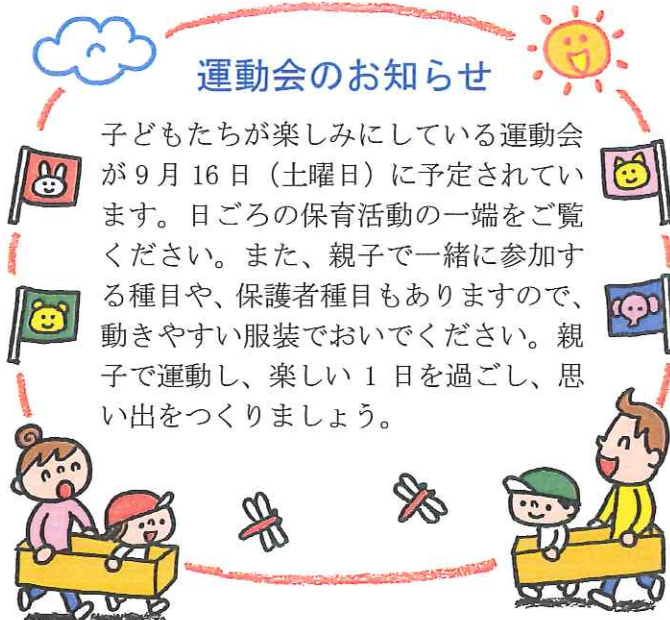 運動会のお知らせ
子どもたちが楽しみにしている運動会
が9月16日（土曜日）に予定されてい
ます。日ごろの保育活動の一端をご覧
ください。また、親子で一緒に参加す
る種目や、保護者種目もありますので、
動きやすい服装でおいでください。親
子で運動し、楽しい 1 日を過ごし、思
い出をつくりましょう。